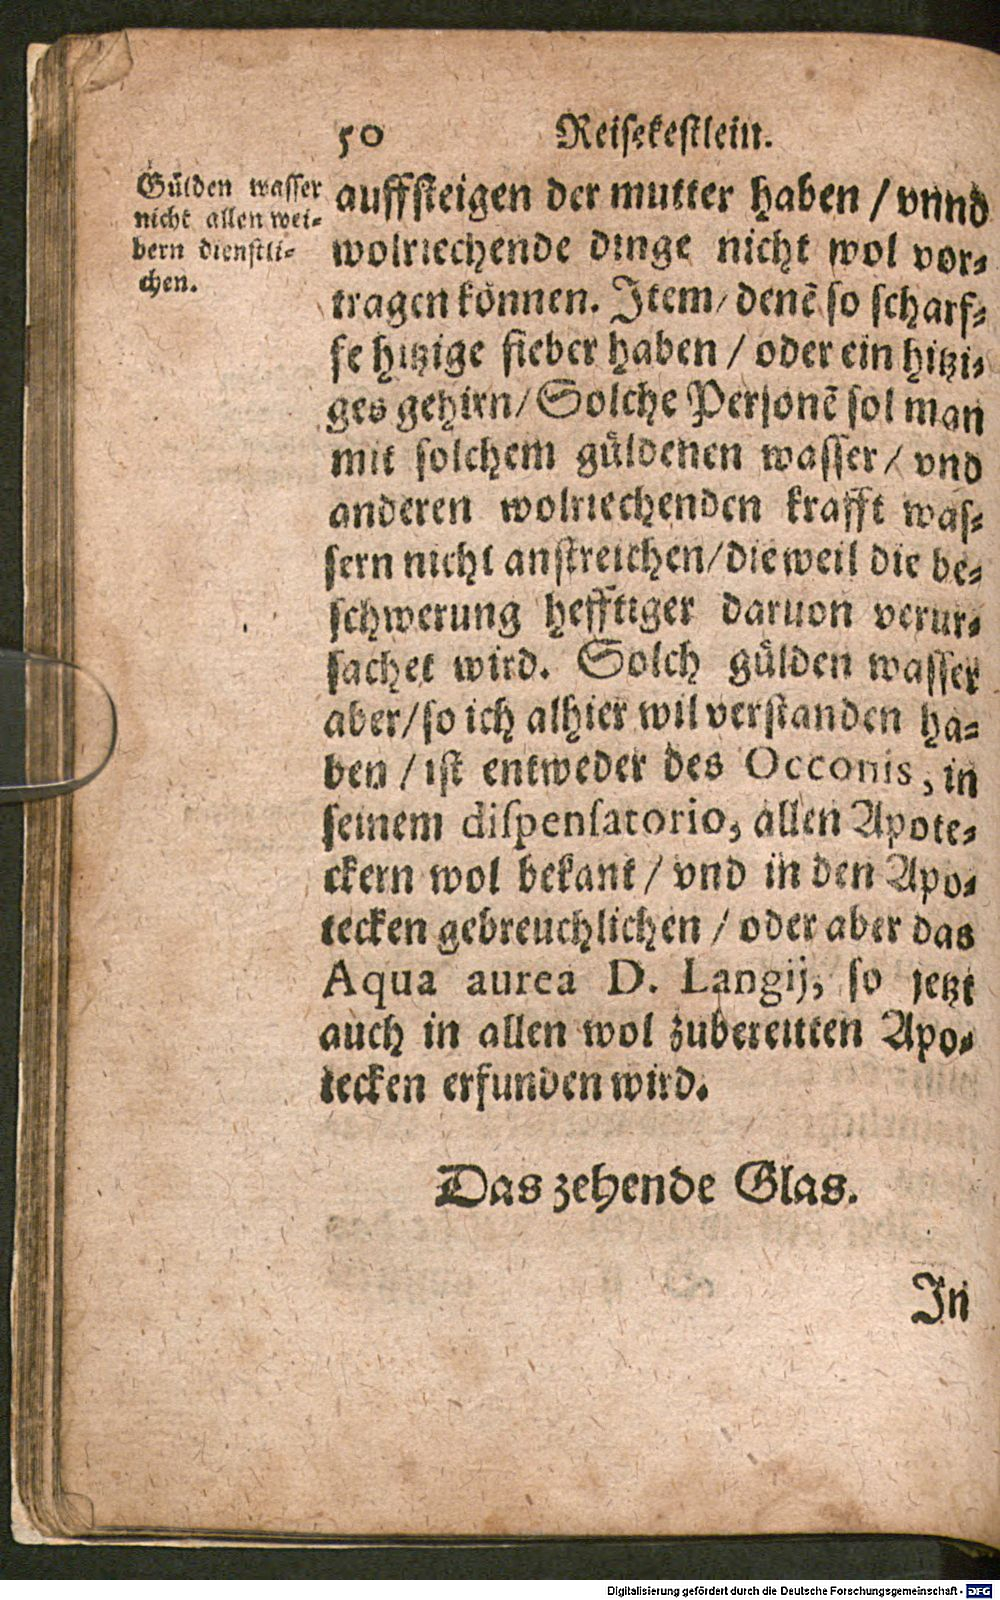 50 Reisekestlein.
Gülden wasser
nicht allen wei-
bern dienstli-
chen.
auffsteigen der mutter haben / vnnd
wolriechende dinge nicht wol vor-
tragen können. Item / denē so scharf-
fe hitzige fieber haben / oder ein hitzi-
ges gehirn / Solche Personē sol man
mit solchem güldenen wasser / vnd
anderen wolriechenden krafft was-
sern nicht anstreichen / die weil die be-
schwerung hefftiger daruon verur-
sachet wird. Solch gülden wasser
aber / so ich alhier wil verstanden ha-
ben / ist entweder des Occonis, in
seinem dispensatorio, allen Apote-
ckern wol bekant / vnd in den Apo-
tecken gebreuchlichen / oder aber das
Aqua aurea D. Langij, so jetzt
auch in allen wol zubereitten Apo-
tecken erfunden wird.
Das zehende Glas.
In
Digitalisierung gefördert durch die Deutsche Forschungsgemeinschaft - DFG